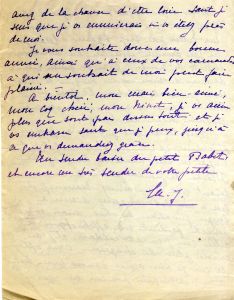 avez de la chance d'être loin. Sans ça je
sens que je vous ennuierais si vous étiez près
de moi.
Je vous souhaite donc une bonne
année, ainsi que à ceux de vos camarades
à qui un souhait de moi peut faire
plaisir.
A bientôt, mon ami bien-aimé,
mon chéri, mon je vous aime
plus que tout par dessus tout et je
vous embrasse tant que je peux, jusqu'à
ce que vous demandiez grâce.
Un tendre baiser du petit
et encore un très tendre de votre petite